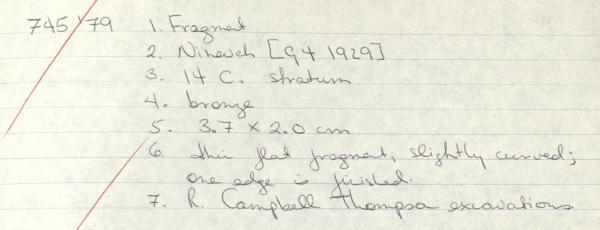 745/'79 1. Fragment
2. Nineveh [G4 1929]
3. 14 C. stratum
4. bronze
5. 3.7 x 2.0 cm
6. thin flat fragment, slightly curved;
one edge is finished.
7. R. Campbell Thompson excavations.